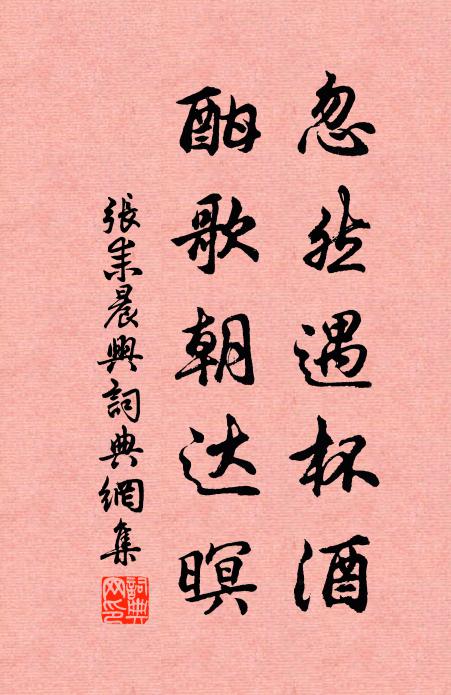 忽然遇杯酒
酣歌朝达暝
張耒晨興詞典網集
詞典网名